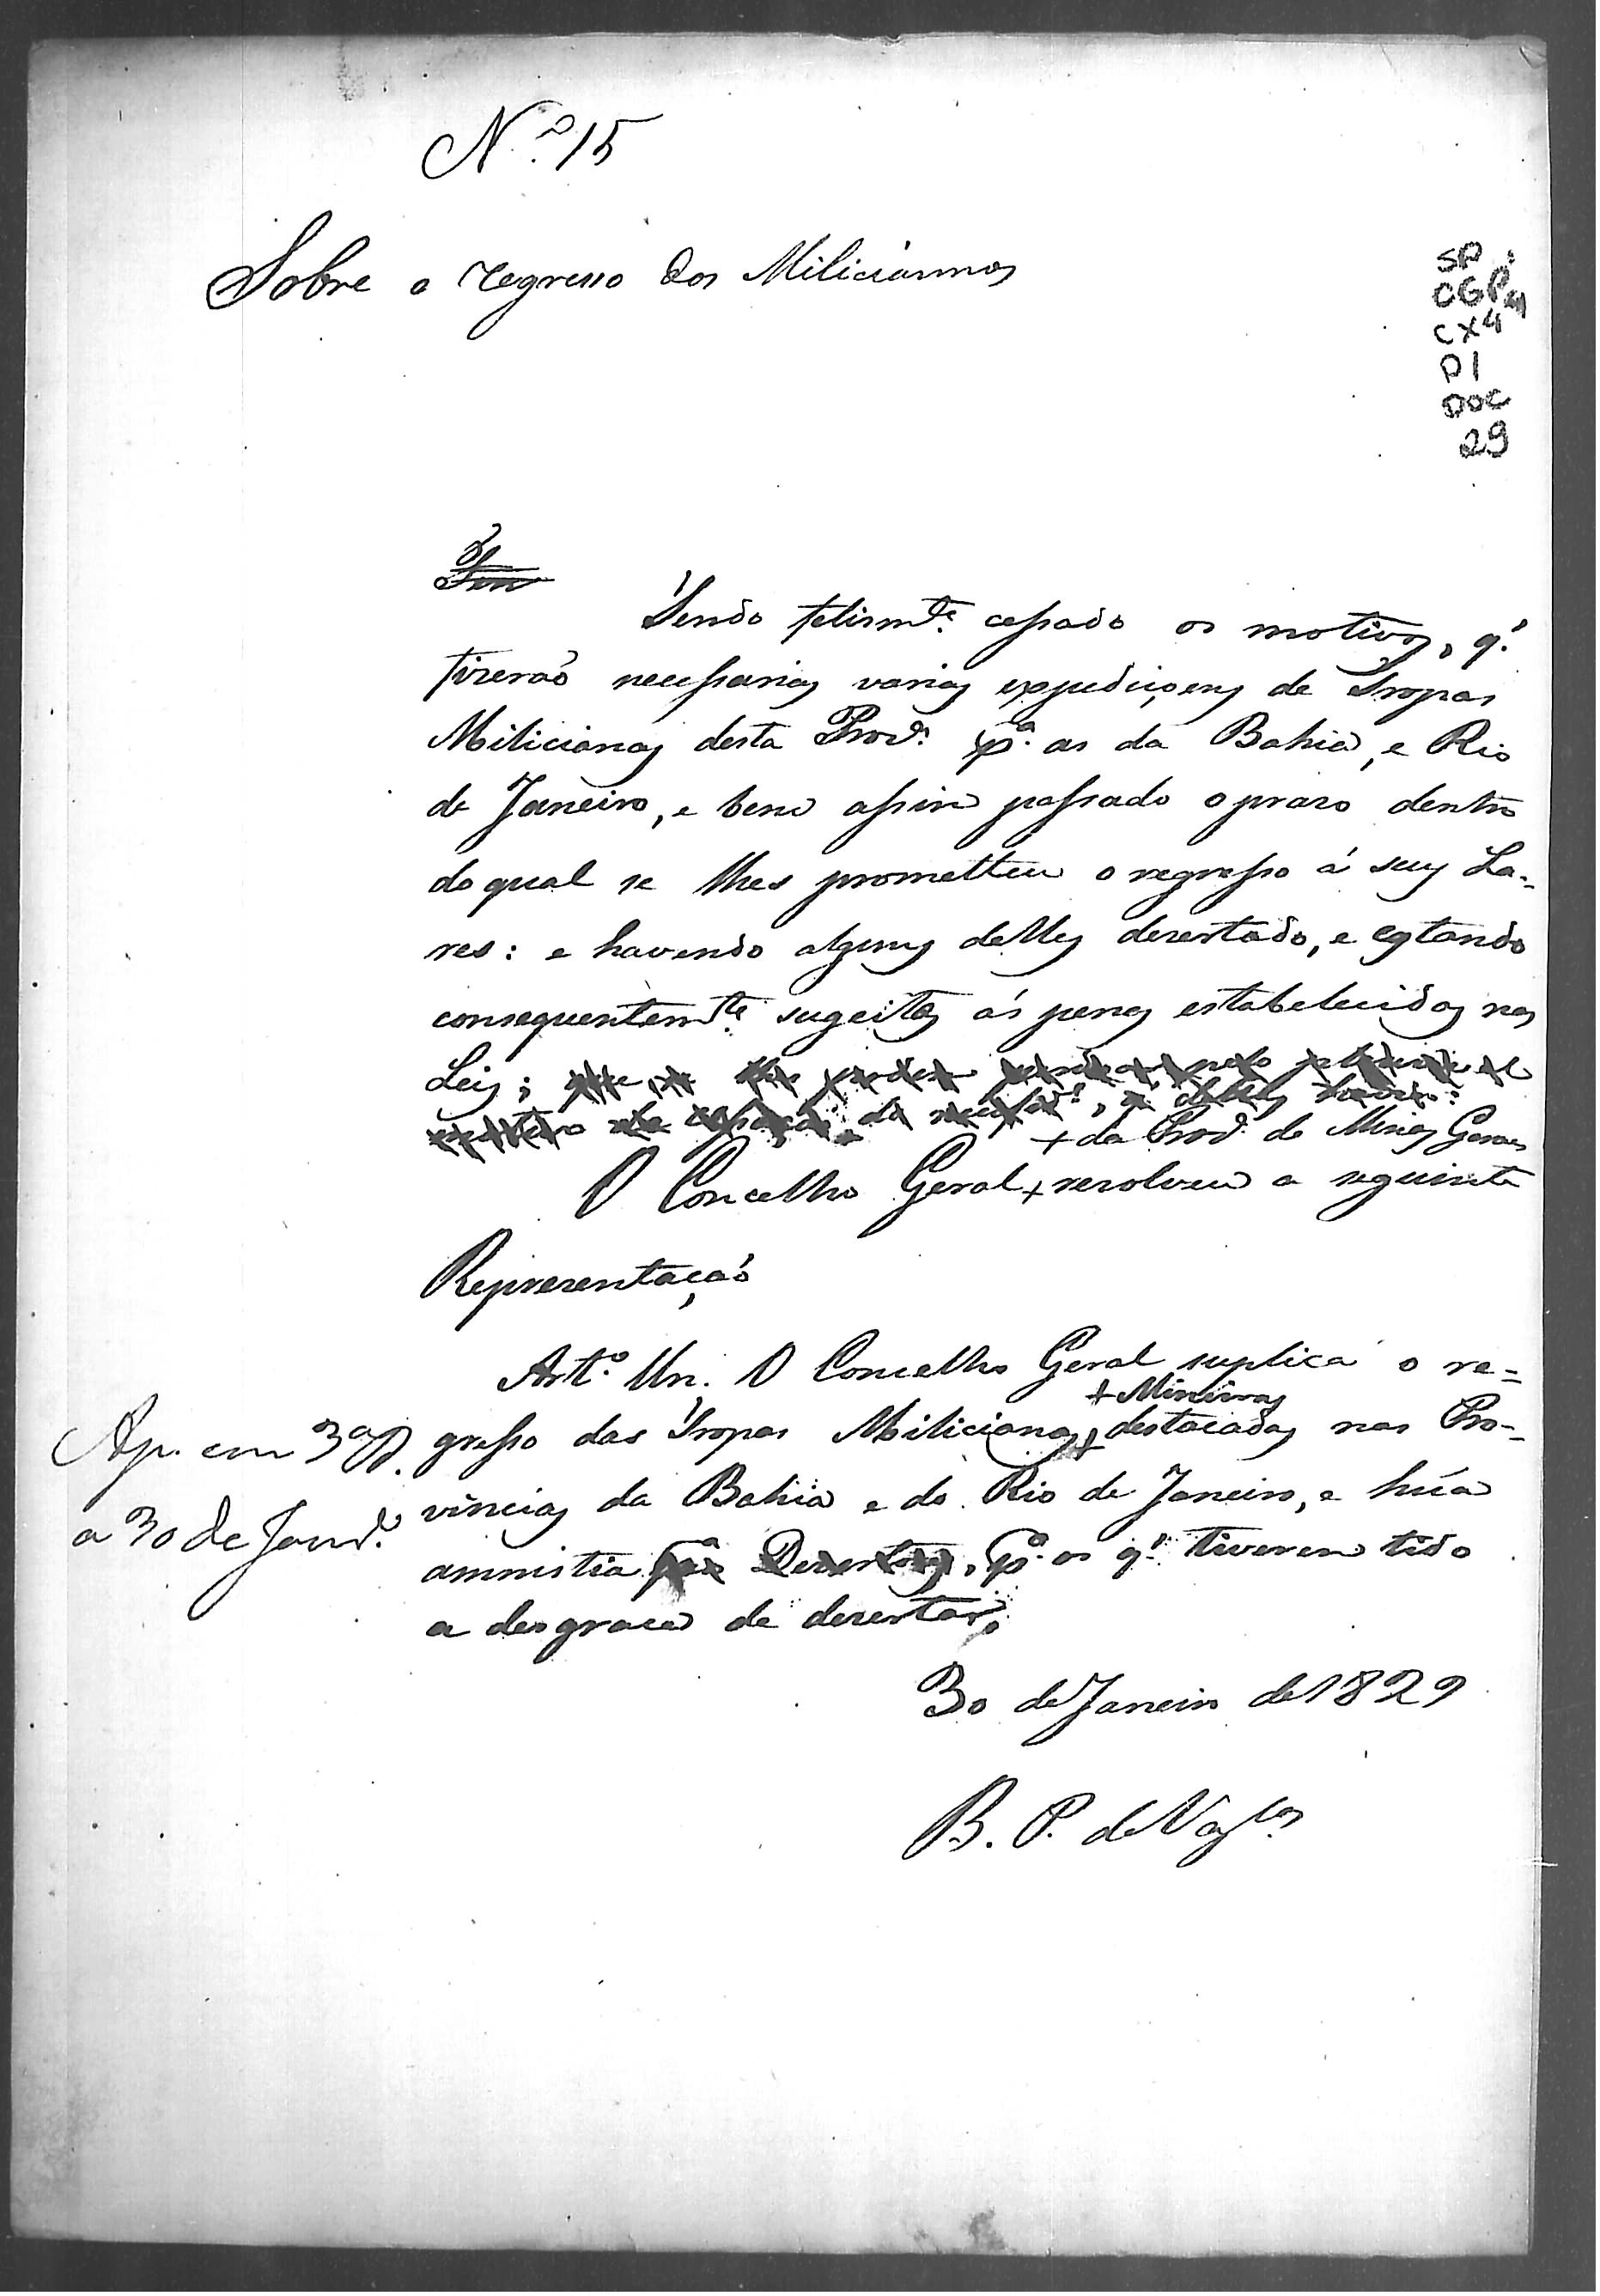 N.º 15
Sobre o regresso dos Miliciannos
SP
CGP
CX4
P1
DOC
29
Sendo felism.te cessado os motivos, q.
fizerão necessarias varias expediçoens de Tropas
Milicianas desta Prov.ª p.ª as da Bahia, e Rio
de Janeiro, e bem assim passado o prazo dentro
do qual se lhes prometteu o regresso á seus La-
res: e havendo alguns delles dezertado, e estando
consequentem.te sugeitos ás penas estabelecidas nas
Leis;
+ da Prov.ª de Minas Geraes
O Concelho Geral + resolveu a seguinte
Reprezentação
Art.º Un. O Concelho Geral suplica o re-
+ Mineiras
gresso das Tropas Milicianas + destacadas nas Pro-
vincias da Bahia e do Rio de Janeiro, e húa
amnistia p.ª os q. tiverem tido
a desgraça de dezertar.
Ap. em 3ª D.
a 30 de Janr.º
30 de Janeiro de 1829
B. P. de Vas.los